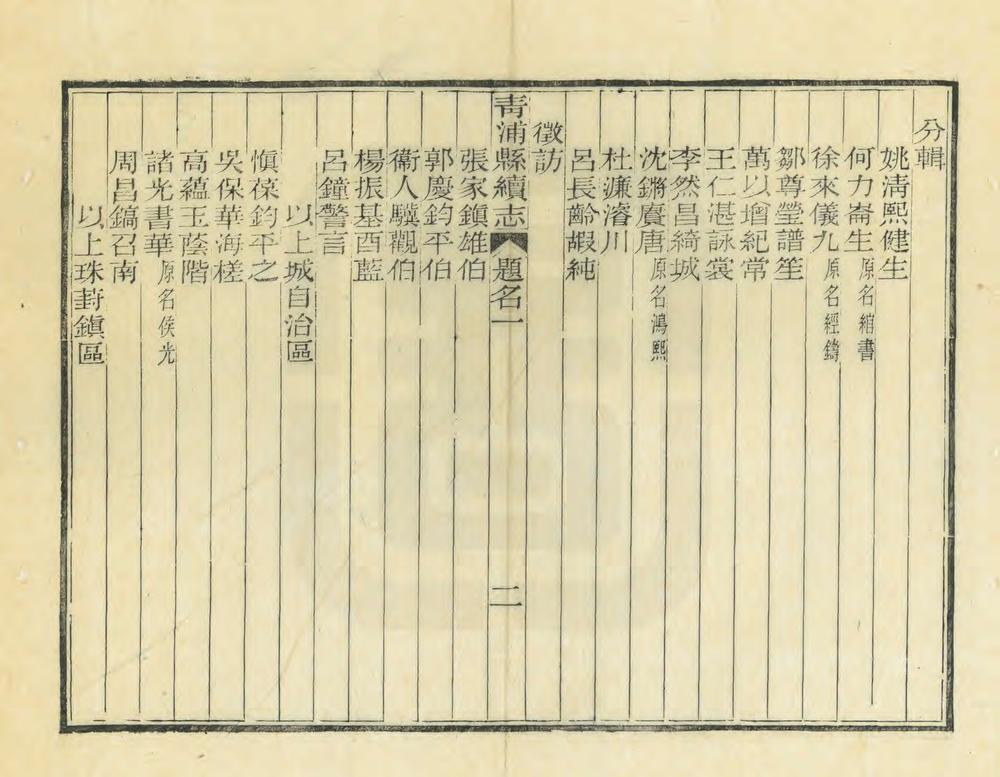 分輯
姚淸熙健生
何力崙生原名綰書
徐來儀九原名經鑄
鄒尊瑩譜笙
萬以增紀常
王仁湛詠裳
李然昌綺城
沈鏘賡唐原名鴻熙
杜濂濬川
呂長齡嘏純
徵訪
青浦縣續志 題名一 二
張家鎭雄伯
郭慶鈞平伯
衞人驥觀伯
楊振基酉藍
呂鐘警言
以上城自治區
愼葆鈞平之
吳保華海槎
高蘊玉蔭階
諸光書華原名侯光
周昌鎬召南
以上珠葑鎭區